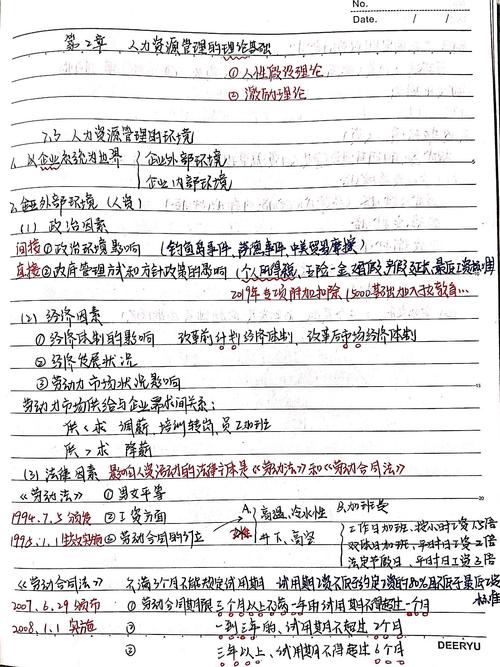 No.
Date. / /
第2章 人力资源管理的理论基础
①人性假设理论
②激励理论
2.3 人力资源管理的环境
1. 以企业系统为边界 企业外部环境
企业内部环境
2. 企业外部环境(人资)
(1) 政治因素
间接 ①政治环境影响 (钓鱼岛事件、萨德事件、中美贸易摩擦)
直接 ②政府管理方式和方针政策的影响 (个人所得税、五险一金、婚假、产假延长、最后工资
2019年专项附加扣除 (5000基础加入抚教育…
(2) 经济因素
①经济体制的影响 改革前计划经济体制、改革后市场经济体制
②经济发展状况
③劳动力市场状况影响
劳动力市场供给与企业需求间关系:
供<求 调薪、培训转岗、员工加班
供>求 降薪
(3) 法律因素 影响人资活动的法律主体是《劳动法》和《劳动合同法》
《劳动法》 ①男女平等 A. 高温、冷水性 B.加班费
1994.7.5 颁发 ②工资方面 女性 井下、高空 工作日加班、按小时工资1.5倍
1995.1.1 生效实施 ④劳动合同的订立 双休日加班、平时日工资2倍
法定节假日、平时日工资3倍
《劳动合同法》 不满3个月不能规定试用期 试用期工资不低于约定工资的80%且不低于最低工资
标准
2007.6.29 颁布 ①劳动合同期限三个月以上不满一年的试用期不得超过一个月
2008.1.1 实施 ② 一到三年的、试用期不超过2个月
③ 三年以上、试用期不得超过6个月
DEERYU